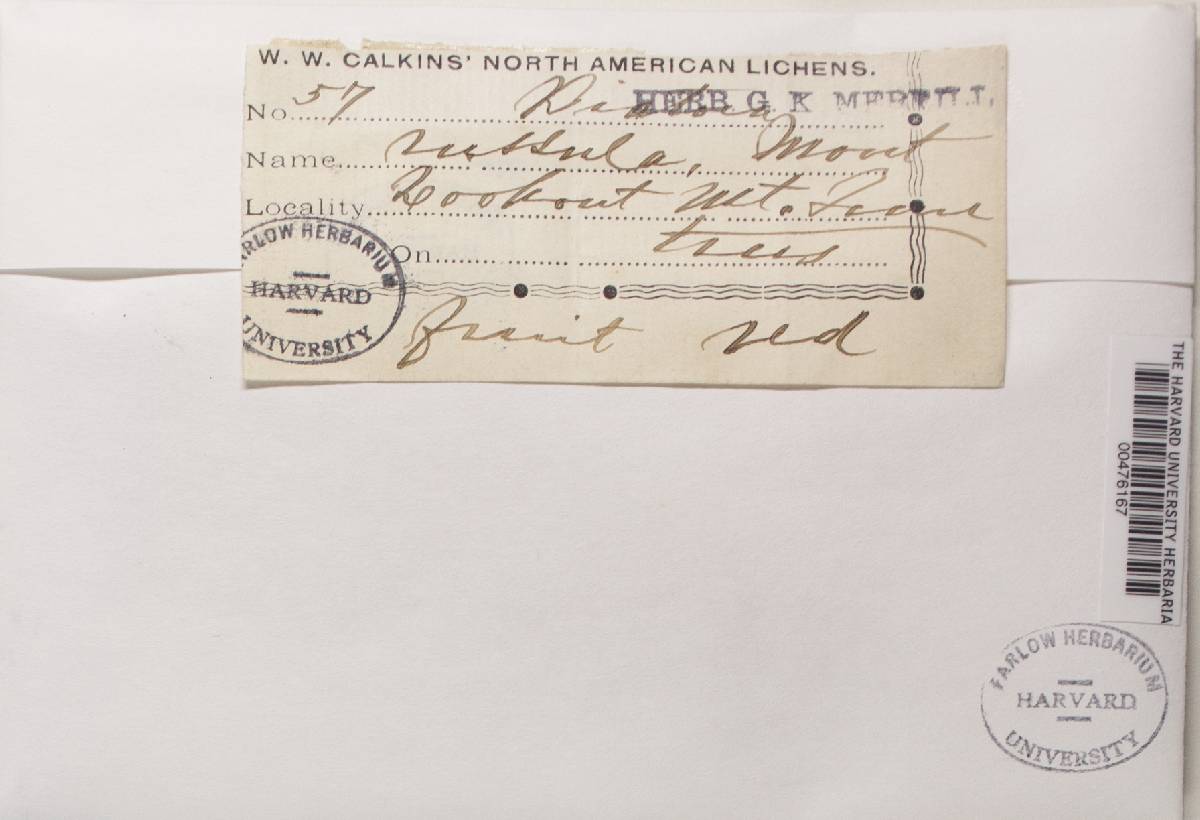 W. W. CALKINS' NORTH AMERICAN LICHENS.
HERB. G. K. MERRILL.
No. 57 Biatora
Name russula, Mont
Locality Lookout Mt. Tenn
On trees
fruit red
FARLOW HERBARIUM
HARVARD
UNIVERSITY
THE HARVARD UNIVERSITY HERBARIA
00476167
FARLOW HERBARIUM
HARVARD
UNIVERSITY